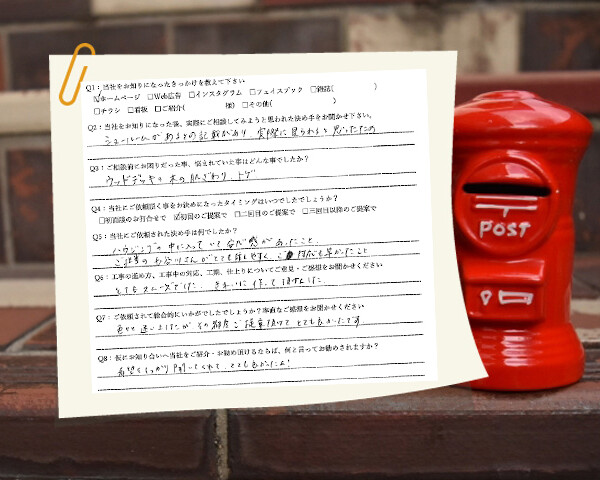 Q1：当社をお知りになったきっかけを教えて下さい
☑ホームページ □Web広告 □インスタグラム □フェイスブック □雑誌( )
□チラシ □看板 □ご紹介( 様) □その他( )
Q2：当社をお知りになった後、実際にご相談してみようと思われた決め手をお聞かせ下さい。
ショールームがあるとの記載があり、実際に見られると思ったため
Q3：ご相談前にお困りだった事、悩まれていた事はどんな事でしたか？
ウッドデッキの木の肌ざわり、トゲ
Q4：当社にご依頼頂く事をお決めになったタイミングはいつでしたでしょうか？
□初面談のお打合せで ☑初回のご提案で □二回目のご提案で □三回目以降のご提案で
Q5：当社にご依頼された決め手は何でしたか？
ハウジングの中に入っていて安心感があったこと、
がとても話しやすく、対応も早かったこと
Q6：工事の進め方、工事中の対応、工期、仕上りについてご意見・ご感想をお聞かせください
とてもスムーズでした。きれいに作って頂けました。
Q7：ご依頼されて総合的にいかがでしたでしょうか？率直なご感想をお聞かせください
色々と迷いましたが、その都度ご提案頂けてとても良かったです
Q8：仮にお知り合いへ当社をご紹介・お勧め頂けるならば、何と言ってお勧めされますか？
してくれて、とても良かったよ！
POST